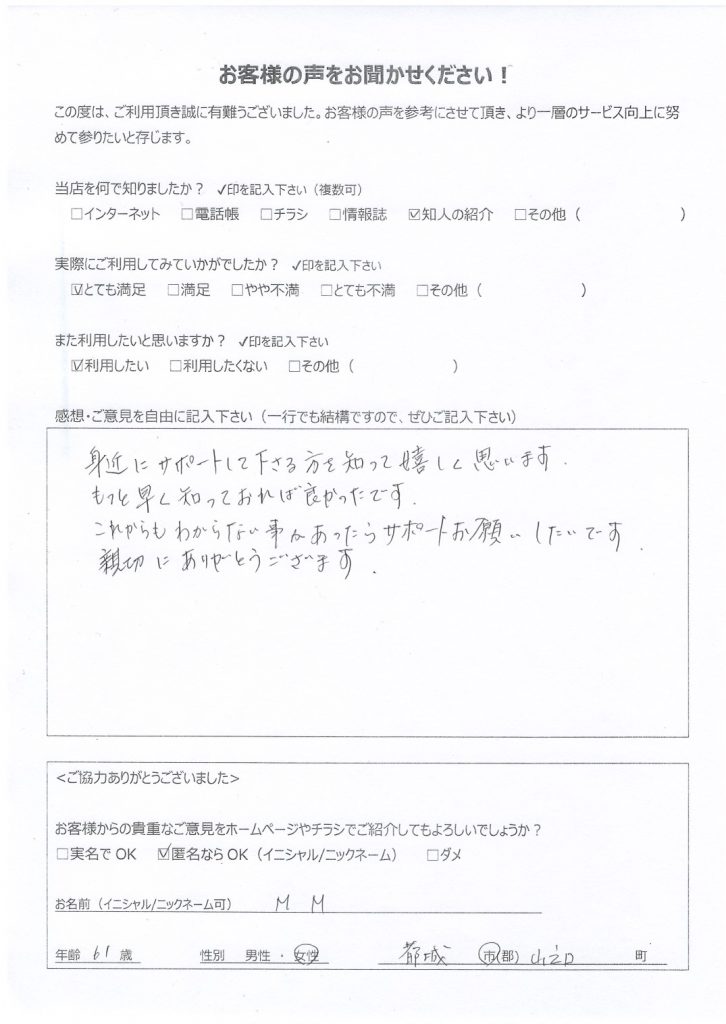 お客様の声をお聞かせください！
この度は、ご利用頂き誠に有難うございました。お客様の声を参考にさせて頂き、より一層のサービス向上に努
めて参りたいと存じます。
当店を何で知りましたか？ ✓印を記入下さい（複数可）
□インターネット □電話帳 □チラシ □情報誌 ☑知人の紹介 □その他（ ）
実際にご利用してみていかがでしたか？ ✓印を記入下さい
☑とても満足 □満足 □やや不満 □とても不満 □その他（ ）
また利用したいと思いますか？ ✓印を記入下さい
☑利用したい □利用したくない □その他（ ）
感想・ご意見を自由に記入下さい（一行でも結構ですので、ぜひご記入下さい）
身近にサポートして下さる方を知って嬉しく思います.
もっと早く知っておれば良かったです.
これからもわからない事があったらサポートお願いしたいです.
親切にありがとうございます.
<ご協力ありがとうございました>
お客様からの貴重なご意見をホームページやチラシでご紹介してもよろしいでしょうか？
□実名でOK ☑匿名ならOK（イニシャル/ニックネーム） □ダメ
お名前（イニシャル/ニックネーム可） M M
年齢 61 歳 性別 男性 ・ 女性 都城 市(郡) 山之口 町